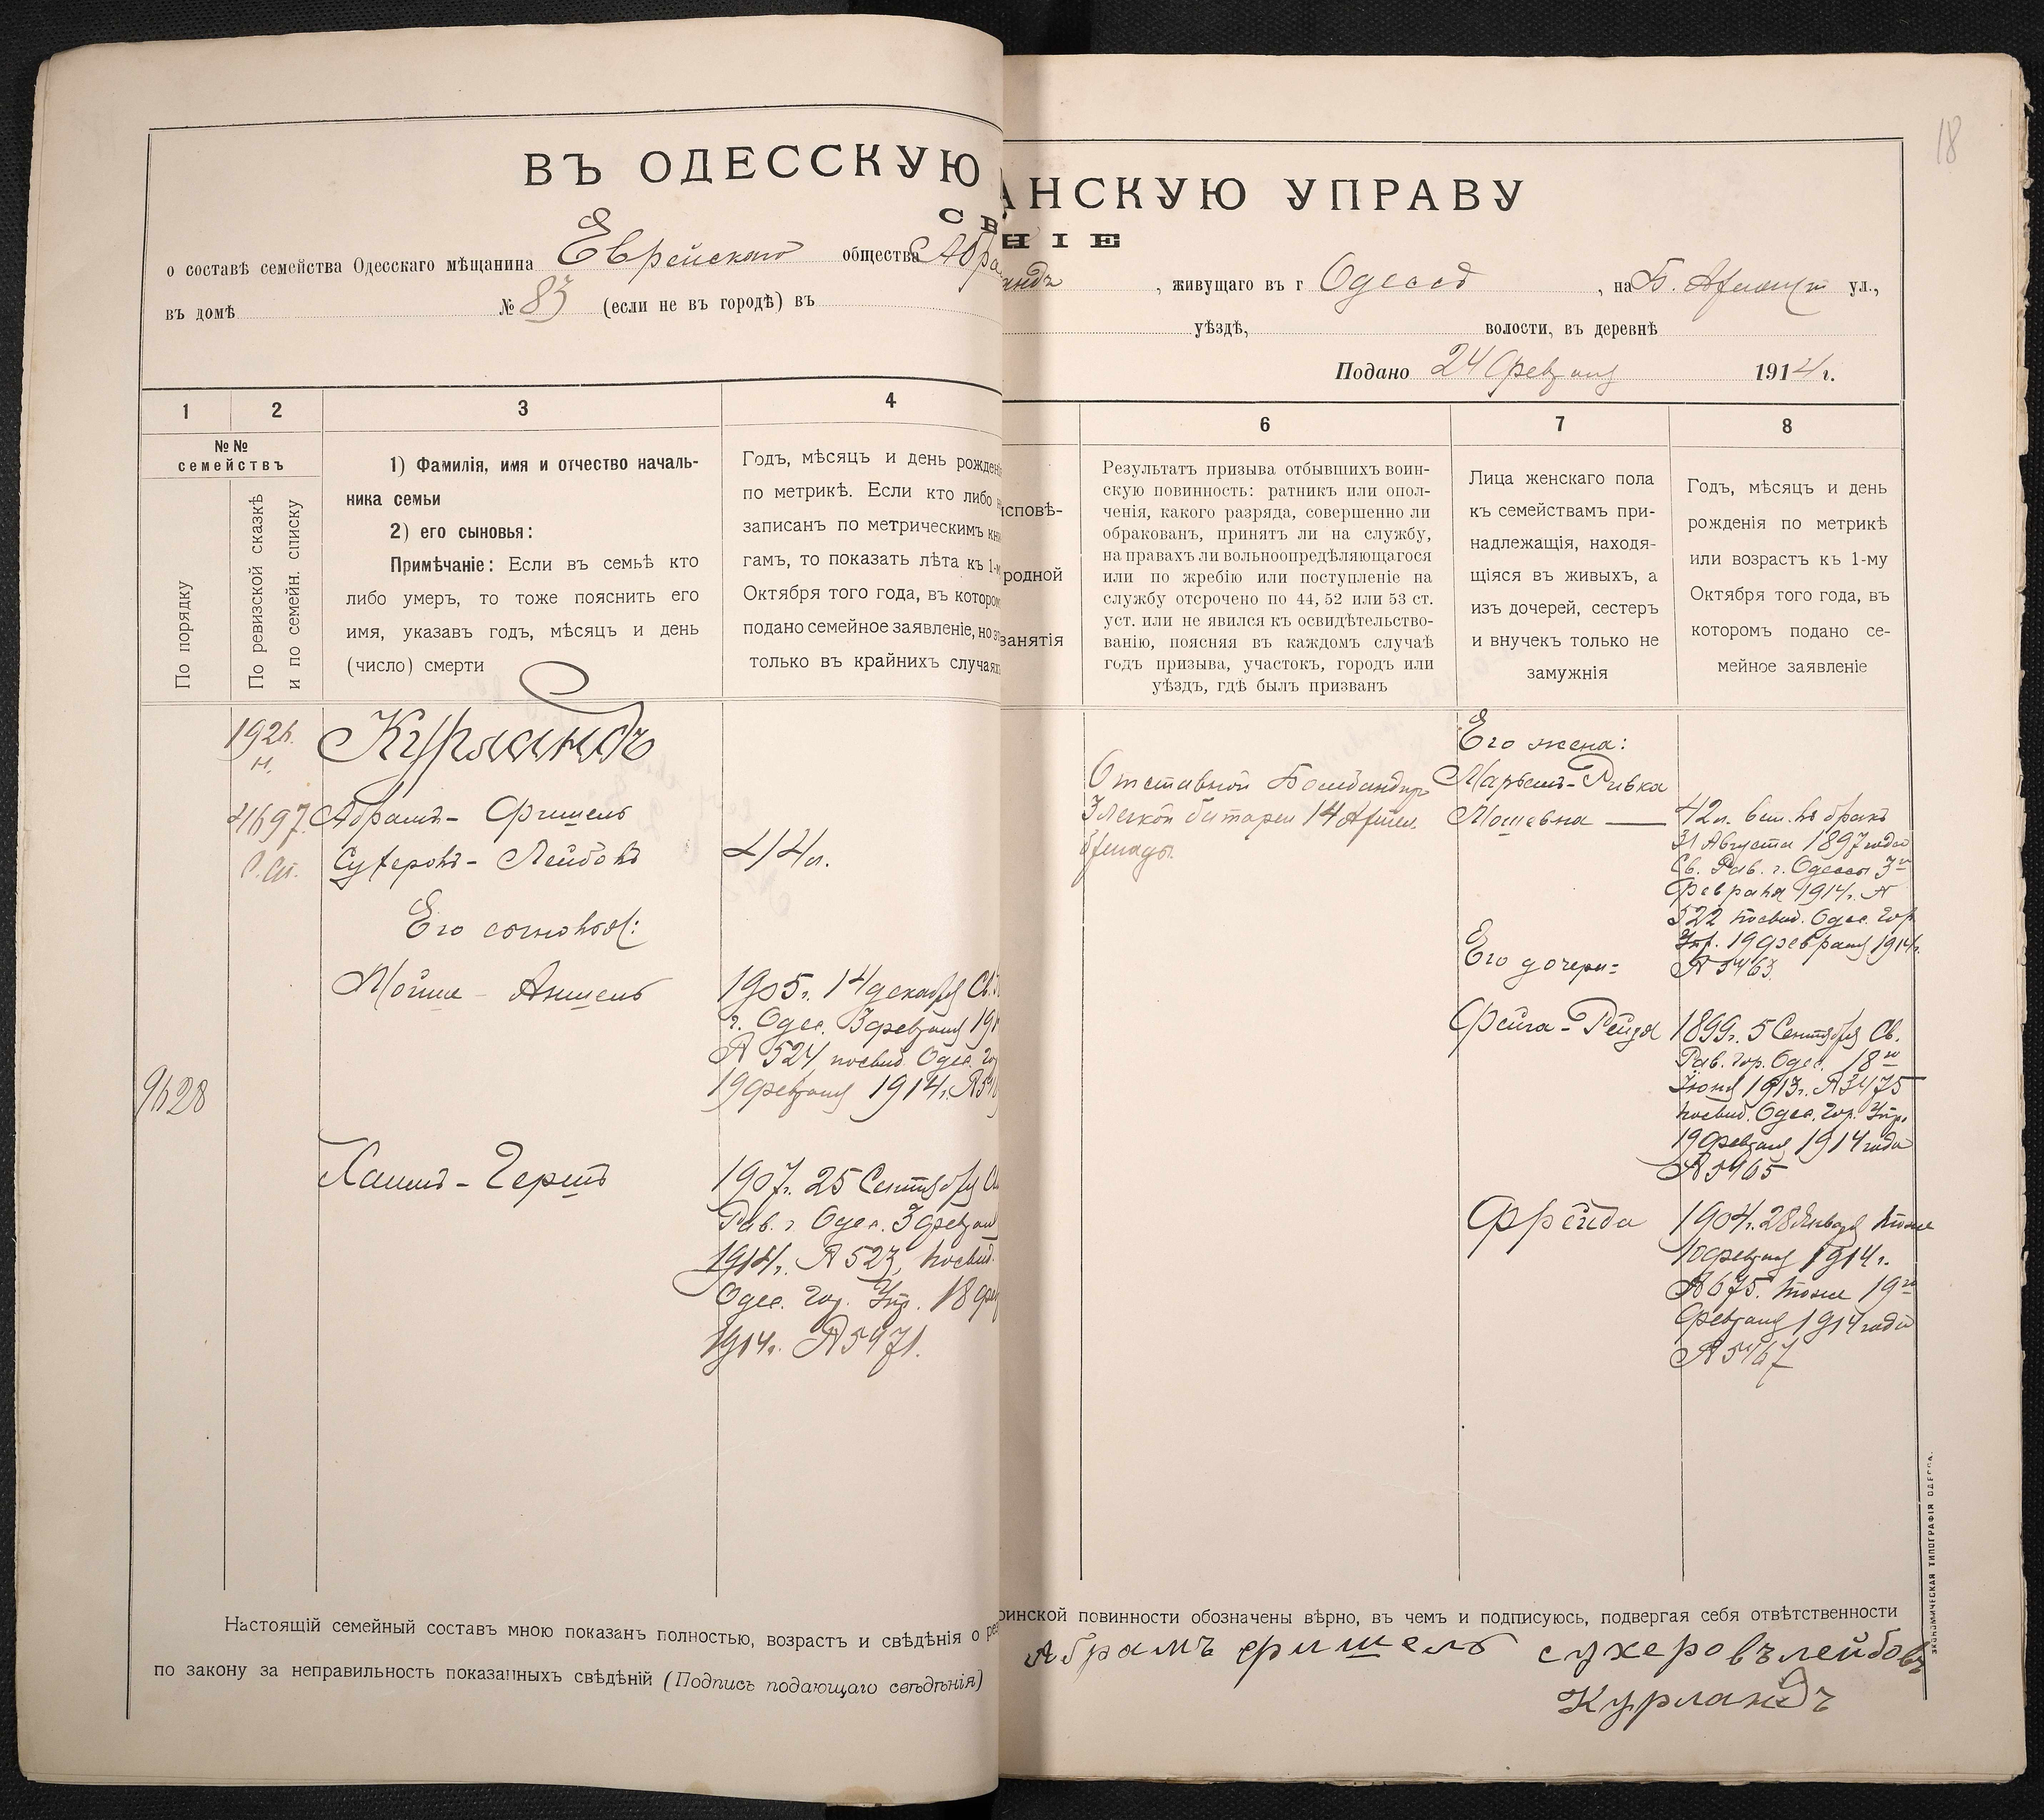 18
ВЪ ОДЕССКУЮ
АНСКУЮ УПРАВУ
СВ
НІЕ
о составѣ семейства Одесскаго мѣщанина Еврейскаго общества Абра
андъ , живущаго въ г Одессѣ , на Б. ул.,
въ домѣ № 83 (если не въ городѣ) въ
уѣздѣ, волости, въ деревнѣ
Подано 24 Февраля 1914 г.
1 2 3 4
№№ семействъ
По порядку
По ревизской сказкѣ
и по семейн. списку
1) Фамилія, имя и отчество началь-
ника семьи
2) его сыновья:
Примѣчаніе: Если въ семьѣ кто
либо умеръ, то тоже пояснить его
имя, указавъ годъ, мѣсяцъ и день
(число) смерти
Годъ, мѣсяцъ и день рожденія
по метрикѣ. Если кто либо н
записанъ по метрическимъ кни
гамъ, то показать лѣта къ 1-м
Октября того года, въ которо
подано семейное заявленіе, но э
только въ крайнихъ случаях
исповѣ-
родной
занятія
6 7 8
Результатъ призыва отбывшихъ воин-
скую повинность: ратникъ или опол-
ченія, какого разряда, совершенно ли
обракованъ, принятъ ли на службу,
на правахъ ли вольноопредѣляющагося
или по жребію или поступленіе на
службу отсрочено по 44, 52 или 53 ст.
уст. или не явился къ освидѣтельство-
ванію, поясняя въ каждомъ случаѣ
годъ призыва, участокъ, городъ или
уѣздъ, гдѣ былъ призванъ
Лица женскаго пола
къ семействамъ при-
надлежащія, находя-
щіяся въ живыхъ, а
изъ дочерей, сестеръ
и внучекъ только не
замужнія
Годъ, мѣсяцъ и день
рожденія по метрикѣ
или возрастъ къ 1-му
Октября того года, въ
которомъ подано се-
мейное заявленіе
Курляндъ
Абрамъ - Фишель
Сухеровъ - Лейбовъ 44 л.
Его сыновья:
Мойше - Аншель
1905 г. 14 декабря Св.
г. Одес. 3 февраля 191
№ 524, посвид. Одес. Го
19 февраля 1914 г. №
9628
Хаимъ - Гершъ
1907 г. 25 Сентября
Рав. г. Одес. 3 февраля
1914 г. № 523, посвид.
Одес. Гор. Упр. 18 фев
1914 г. № 5471.
Отставной Бомбандиръ
3 легкой батареи 14 Артил.
бригады.
Его жена:
Марьемъ - Ривка
Мошевна —
42 л. вст. въ бракъ
31 Августа 1897 года
Св. Рав. г. Одессы 3го
Февраля 1914 г. №
522 посвид. Одес. Гор.
Упр. 19 февраля 1914 г.
№ 5463.
Его дочери:
Фейга - Рейзя
1899 г. 5 Сентября Св.
Рав. Гор. Одес. 18го
Іюня 1913 г. № 3475
посвид. Одес. Гор. Упр.
19 Февраля 1914 года
№ 5465
Фрейда
1904 г. 28 Января тоже
10 февраля 1914 г.
№ 675. тоже 19го
Февраля 1914 года
№ 5467
Настоящій семейный составъ мною показанъ полностью, возрастъ и свѣдѣнія о
оинской повинности обозначены вѣрно, въ чемъ и подписуюсь, подвергая себя отвѣтственности
по закону за неправильность показанныхъ свѣдѣній (Подпись подающаго свѣдѣнія)
Абрамъ фишель сухеровъ лейбовъ
Курландъ
ЭКОНОМИЧЕСКАЯ ТИПОГРАФІЯ ОДЕССА.